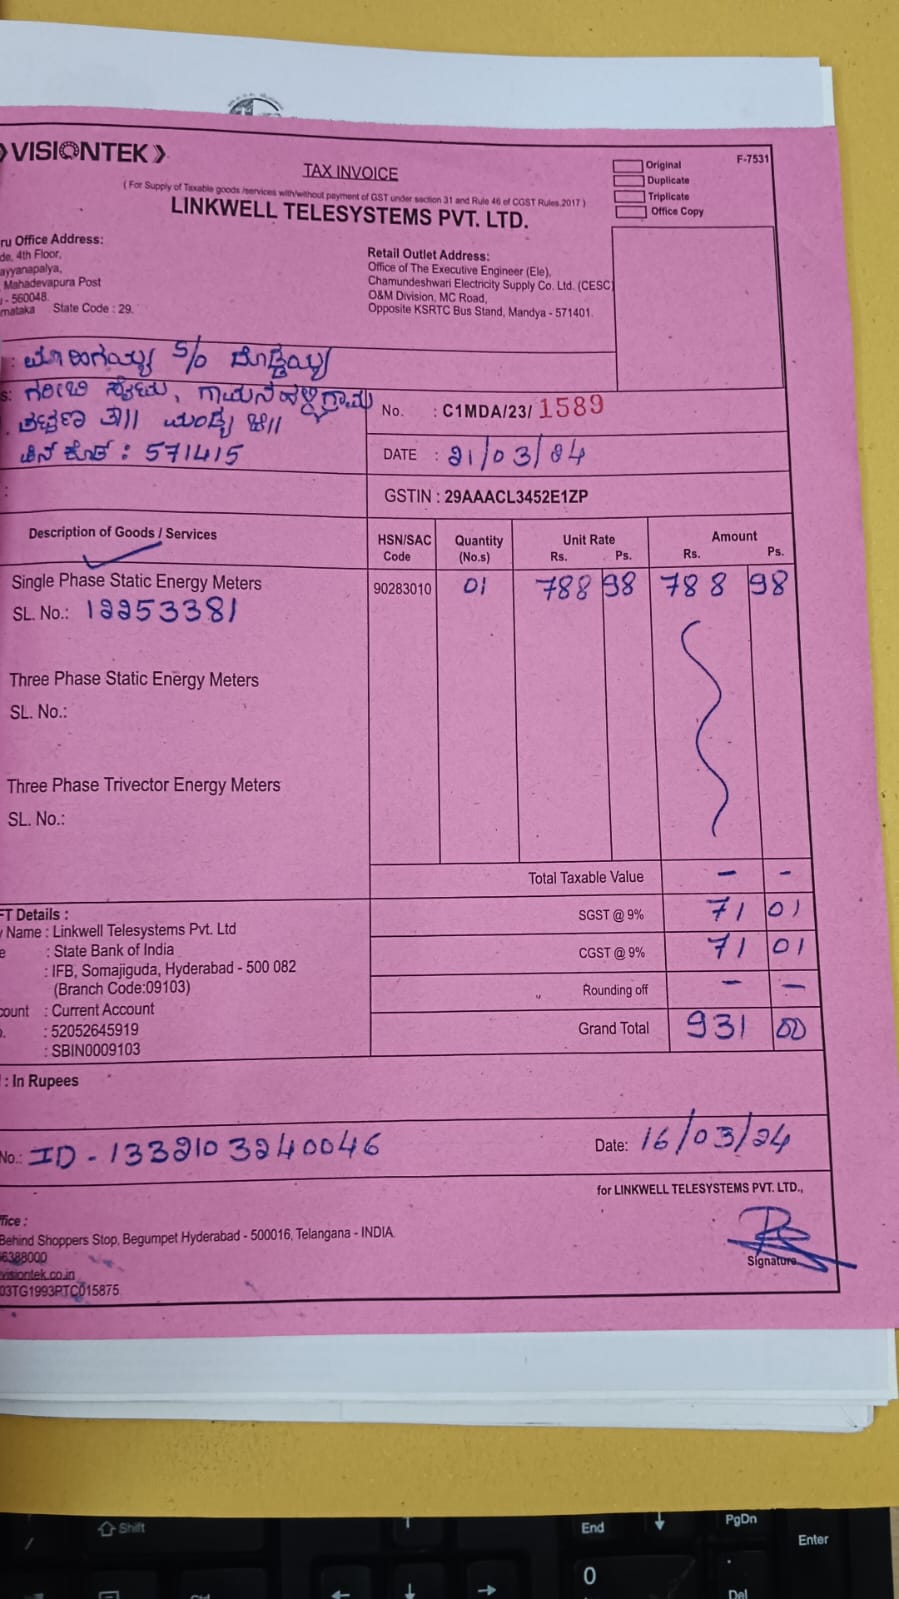 VISIONTEK
TAX INVOICE
( For Supply of Taxable goods /services with/without payment of GST under section 31 and Rule 46 of CGST Rules,2017 )
LINKWELL TELESYSTEMS PVT. LTD.
Original
Duplicate
Triplicate
Office Copy
F-7531
ru Office Address:
de, 4th Floor,
ayyanapalya,
Mahadevapura Post
- 560048.
rnataka State Code : 29.
Retail Outlet Address:
Office of The Executive Engineer (Ele),
Chamundeshwari Electricity Supply Co. Ltd. (CESC
O&M Division, MC Road,
Opposite KSRTC Bus Stand, Mandya - 571401.
S/o ದೊಡ್ಡಯ್ಯ
ಗ್ರಾಮ
ತಾ|| ಮಂಡ್ಯ ಜಿ||
ಪಿನ್ ಕೋಡ್ : 571415
No. : C1MDA/23/ 1589
DATE : 21/03/24
GSTIN : 29AAACL3452E1ZP
Description of Goods / Services
HSN/SAC Code
Quantity (No.s)
Unit Rate
Rs. Ps.
Amount
Rs. Ps.
Single Phase Static Energy Meters 90283010 01 788 98 788 98
SL. No.: 12253381
Three Phase Static Energy Meters
SL. No.:
Three Phase Trivector Energy Meters
SL. No.:
Total Taxable Value - -
SGST @ 9% 71 01
CGST @ 9% 71 01
Rounding off - -
Grand Total 931 00
FT Details :
y Name : Linkwell Telesystems Pvt. Ltd
e : State Bank of India
: IFB, Somajiguda, Hyderabad - 500 082
(Branch Code:09103)
count : Current Account
o. : 52052645919
: SBIN0009103
: In Rupees
No.: ID - 1332103240046
Date: 16/03/24
for LINKWELL TELESYSTEMS PVT. LTD.,
Signature
ffice :
Behind Shoppers Stop, Begumpet Hyderabad - 500016, Telangana - INDIA.
6388000
visiontek.co.in
03TG1993PTC015875
Shift
End
PgDn
Enter
0
Del